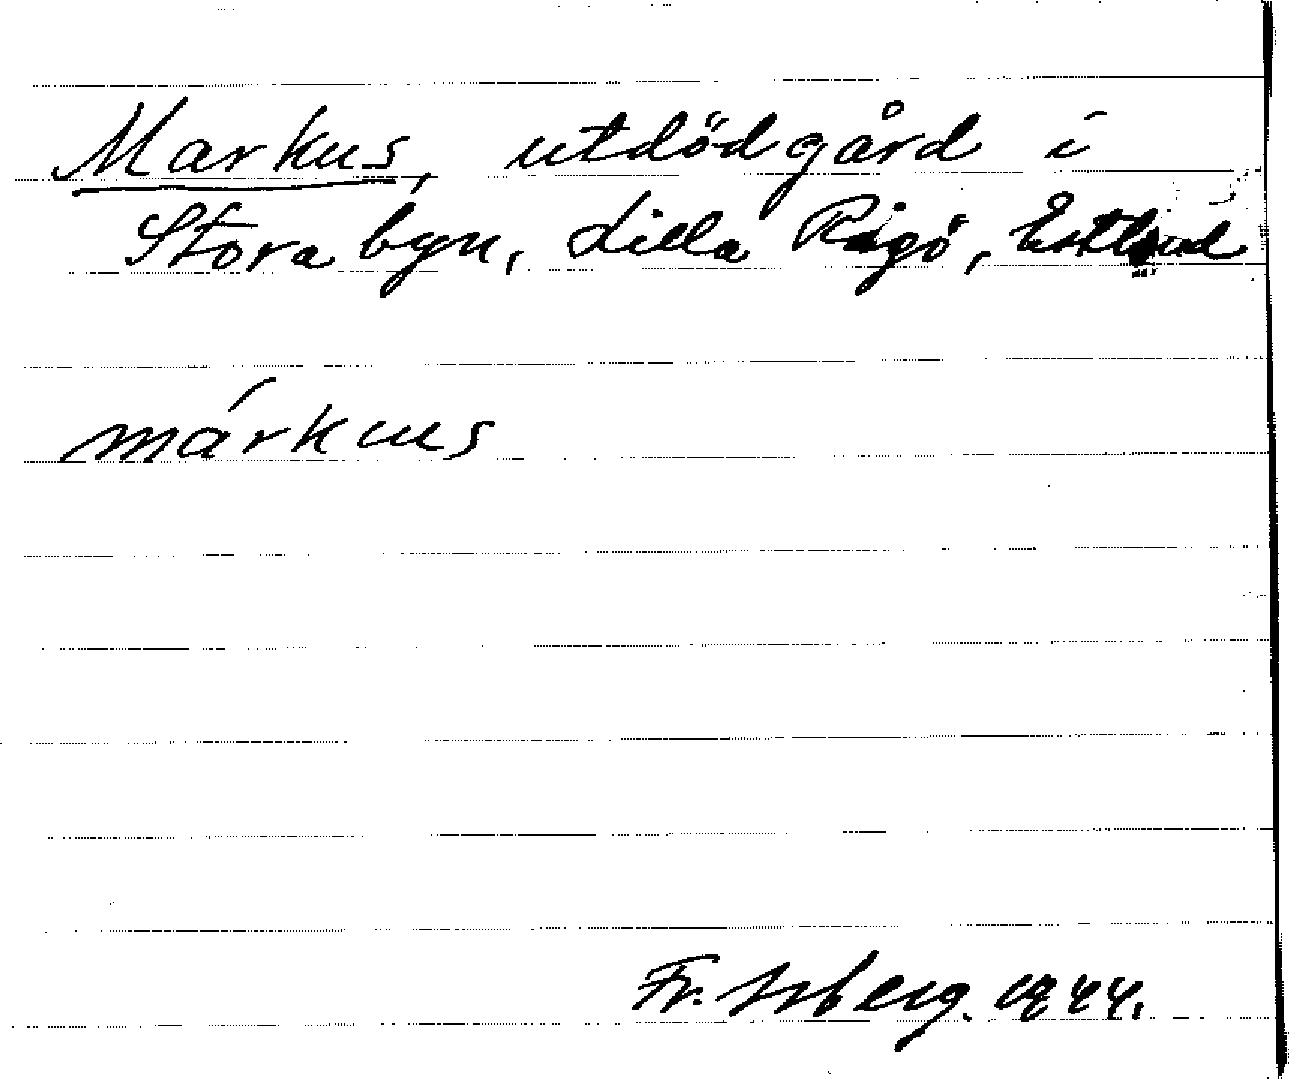 Markus, utdöd gård i
Stora byn, Lilla Rågö, Estland
márkus
Fr. Isberg. 1944.